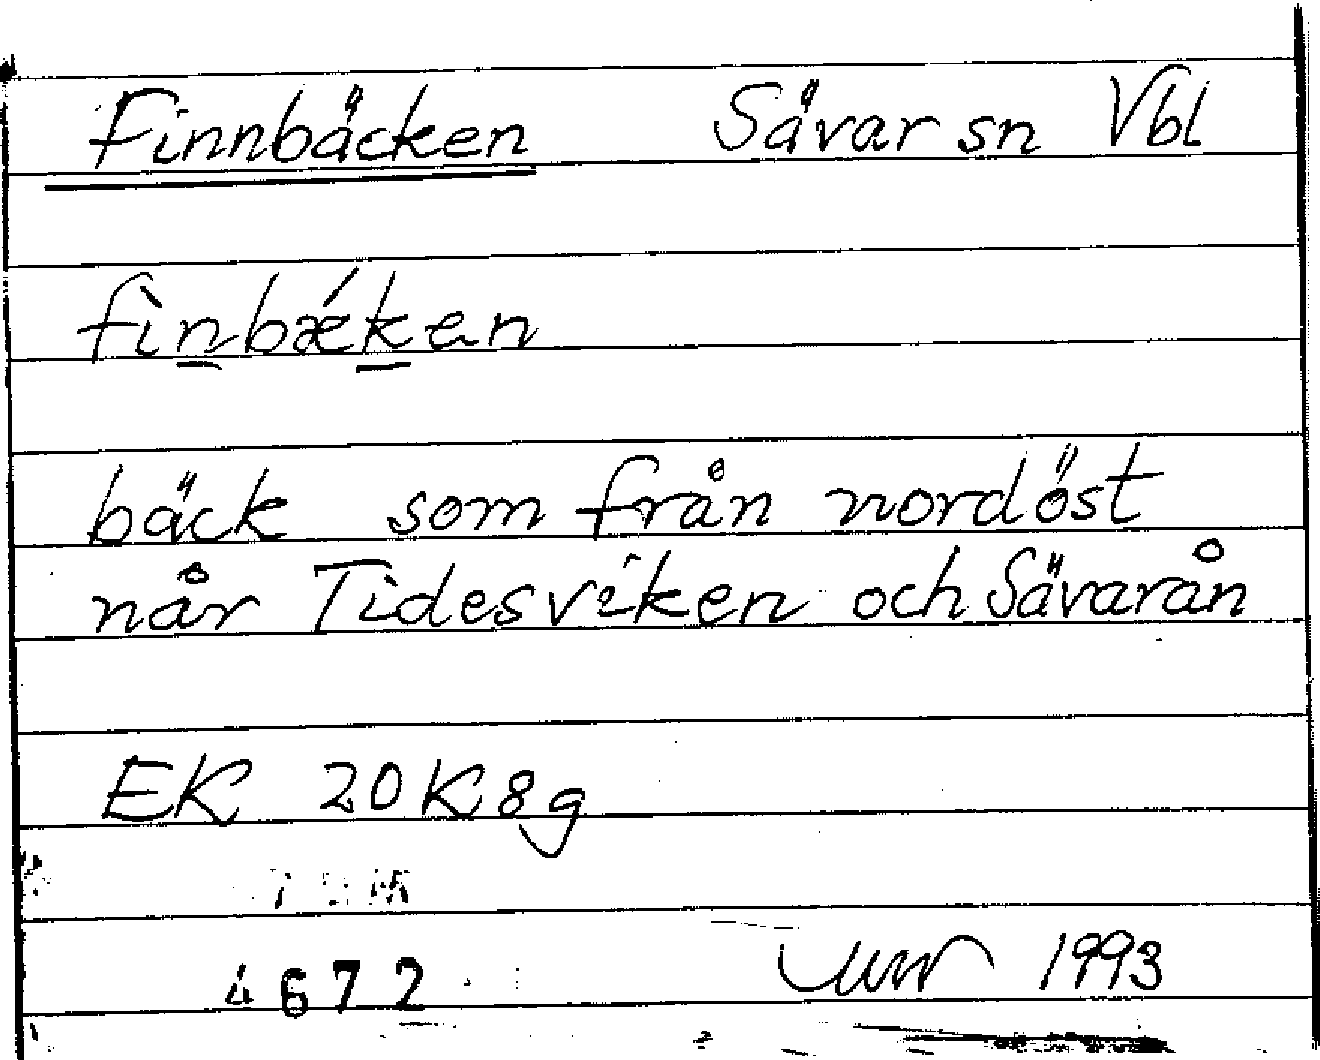 Finnbäcken Sävar sn Vbl
fìn̲bǽk̲en
bäck som från nordöst
når Tidesviken och Sävarån
EK 20K8g
4672 1993